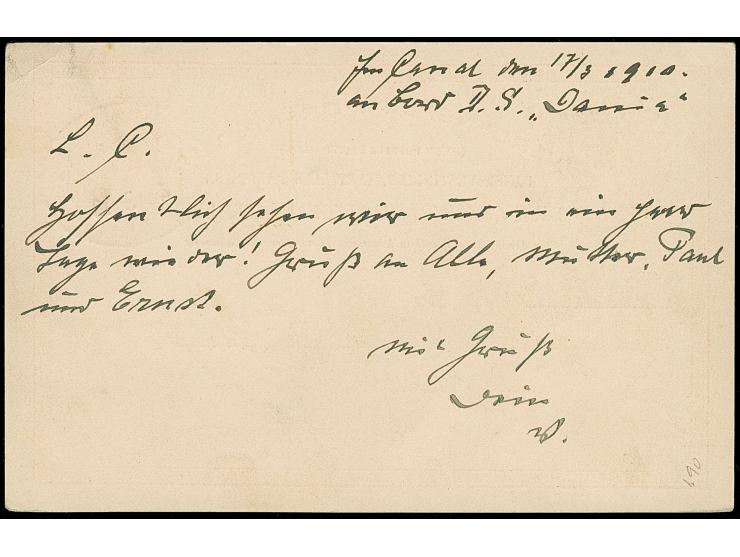 Im Canal den 17/3 1910.
an Bord D. S. „Dania“
L. C.
Hoffentlich sehen wir uns in ein paar
Tage wieder! Gruß an Alle, Mutter, Paul
und Ernst.
mit Gruß
Dein
W.
190